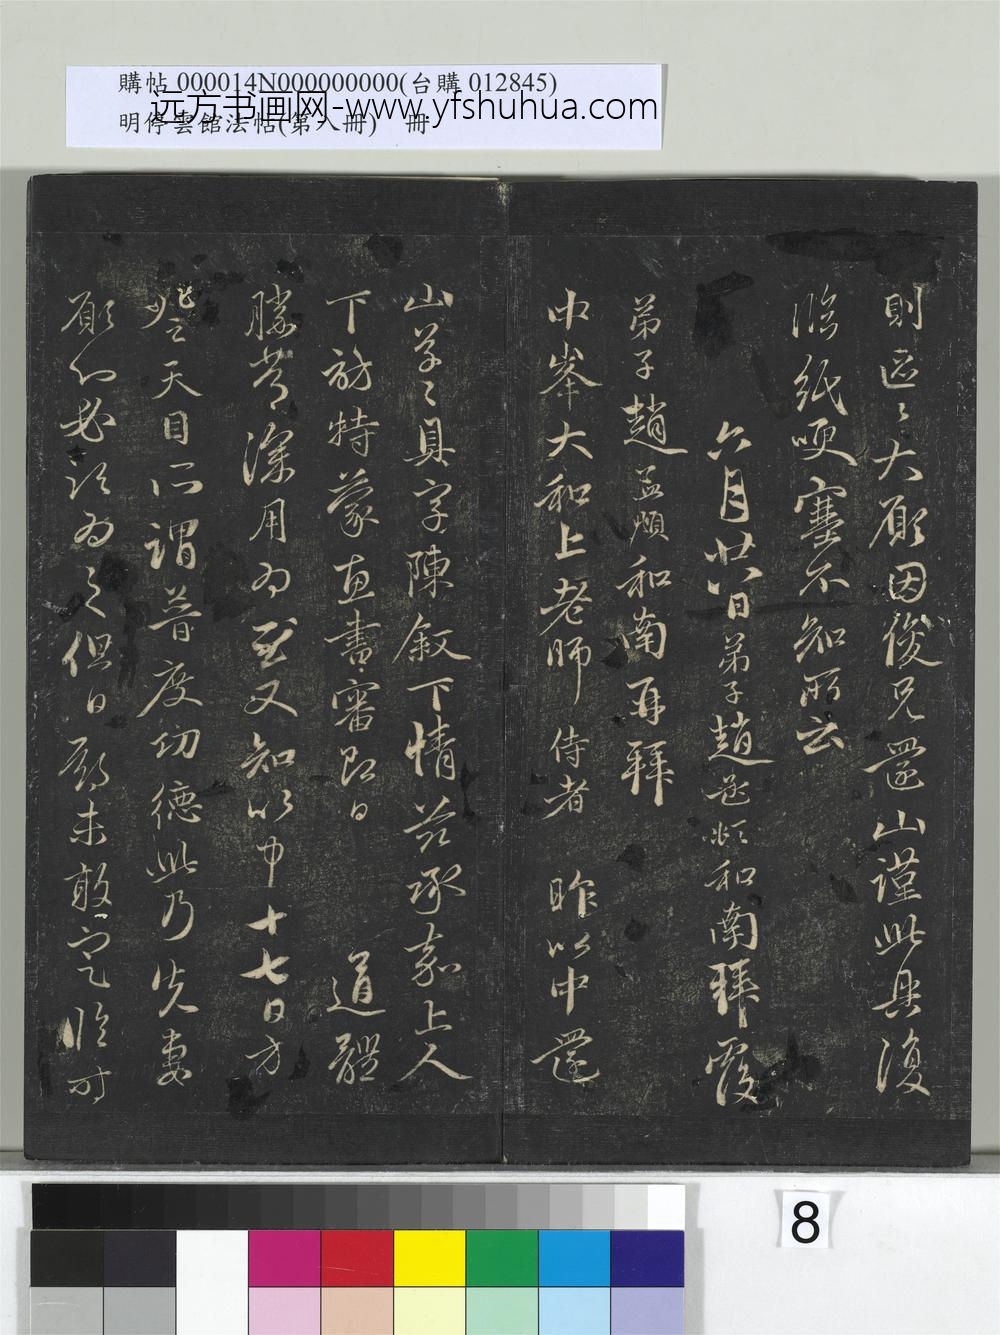 購帖 000014N000000000(台購 012845)
远方书画网-www.yfshuhua.com
明停雲館法帖(第八冊) 冊
則區〻大願因俊兄還山謹此具復
臨紙哽塞不知所云
六月廿八日弟子趙孟頫和南拜覆
弟子趙孟頫和南再拜
中峯大和上老師 侍者 昨以中還
山草〻具字陳叙下情茲承嘉上人
下訪特蒙惠書審即日 道體
勝常深用為慰又知以中十七日方
登天目所謂普度功德此乃先妻
願心必須為之但日歷未敢定臨时
8